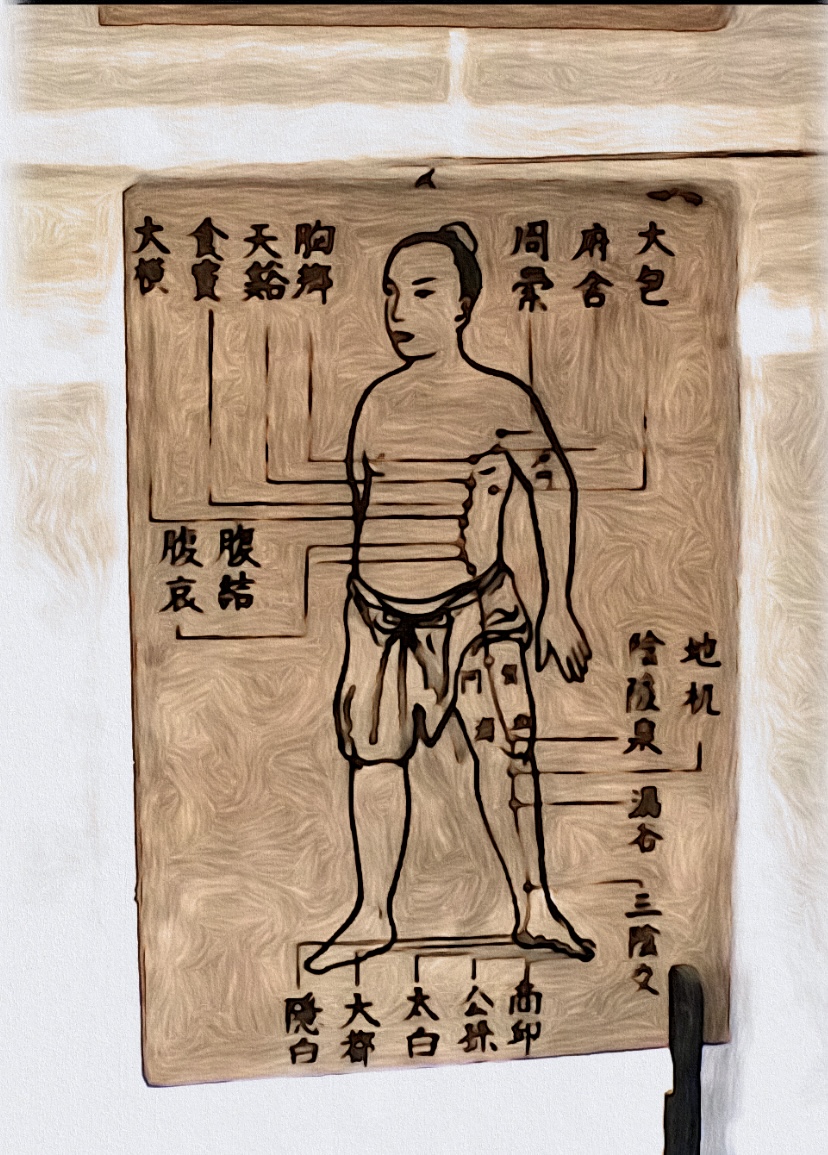 大包
府舍
周榮
胸鄉
天谿
食竇
大横
腹結
腹哀
地机
陰陵泉
漏谷
三陰交
商邱
公孫
太白
大都
隱白